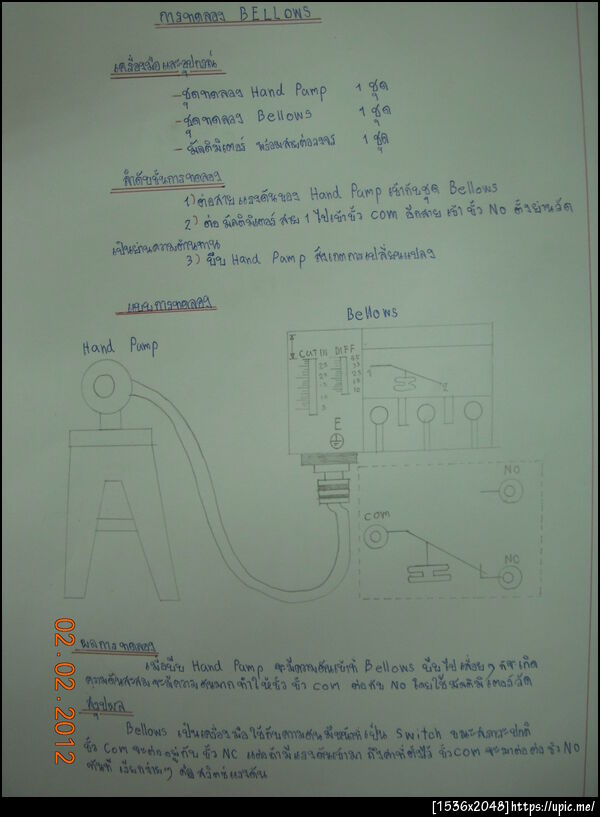 การทดลอง BELLOWS
เครื่องมือและอุปกรณ์
-ชุดทดลอง Hand Pump 1 ชุด
-ชุดทดลอง Bellows 1 ชุด
-มัลติมิเตอร์ พร้อมสายต่อวงจร 1 ชุด
ลำดับขั้นการทดลอง
1) ต่อสายแรงดันของ Hand Pump เข้ากับชุด Bellows
2) ต่อ มัลติมิเตอร์ สาย 1 ไปเข้าขั้ว com อีกสาย เข้า ขั้ว NO ตั้งย่านวัด
เป็นย่านความต้านทาน
3) บีบ Hand Pump สังเกตการเปลี่ยนแปลง
แบบการทดลอง
Bellows
Hand Pump
CUT IN DIFF
1
2
E
NO
com
NC
ผลการทดลอง
เมื่อบีบ Hand Pump จะมีความดันเข้าที่ Bellows บีบไปเรื่อยๆ ก็จะเกิด
ความดันสะสมจะมีความดันมาก ทำให้ขั้ว ขั้ว com ต่อกับ NO โดยใช้มัลติมิเตอร์วัด
สรุปผล
Bellows เป็นเครื่องมือ ใช้กับความดัน มีหน้าที่เป็น Switch ขณะสภาวะปกติ
ขั้ว com จะต่ออยู่กับ ขั้ว NC แต่ถ้ามีแรงดันเข้ามา ถึงค่าที่ตั้งไว้ ขั้ว com จะมาต่อ ขั้ว NO
ทันที เรียกง่ายๆ คือ สวิตซ์แรงดัน
02.02.2012
[1536x2048]https://upic.me/